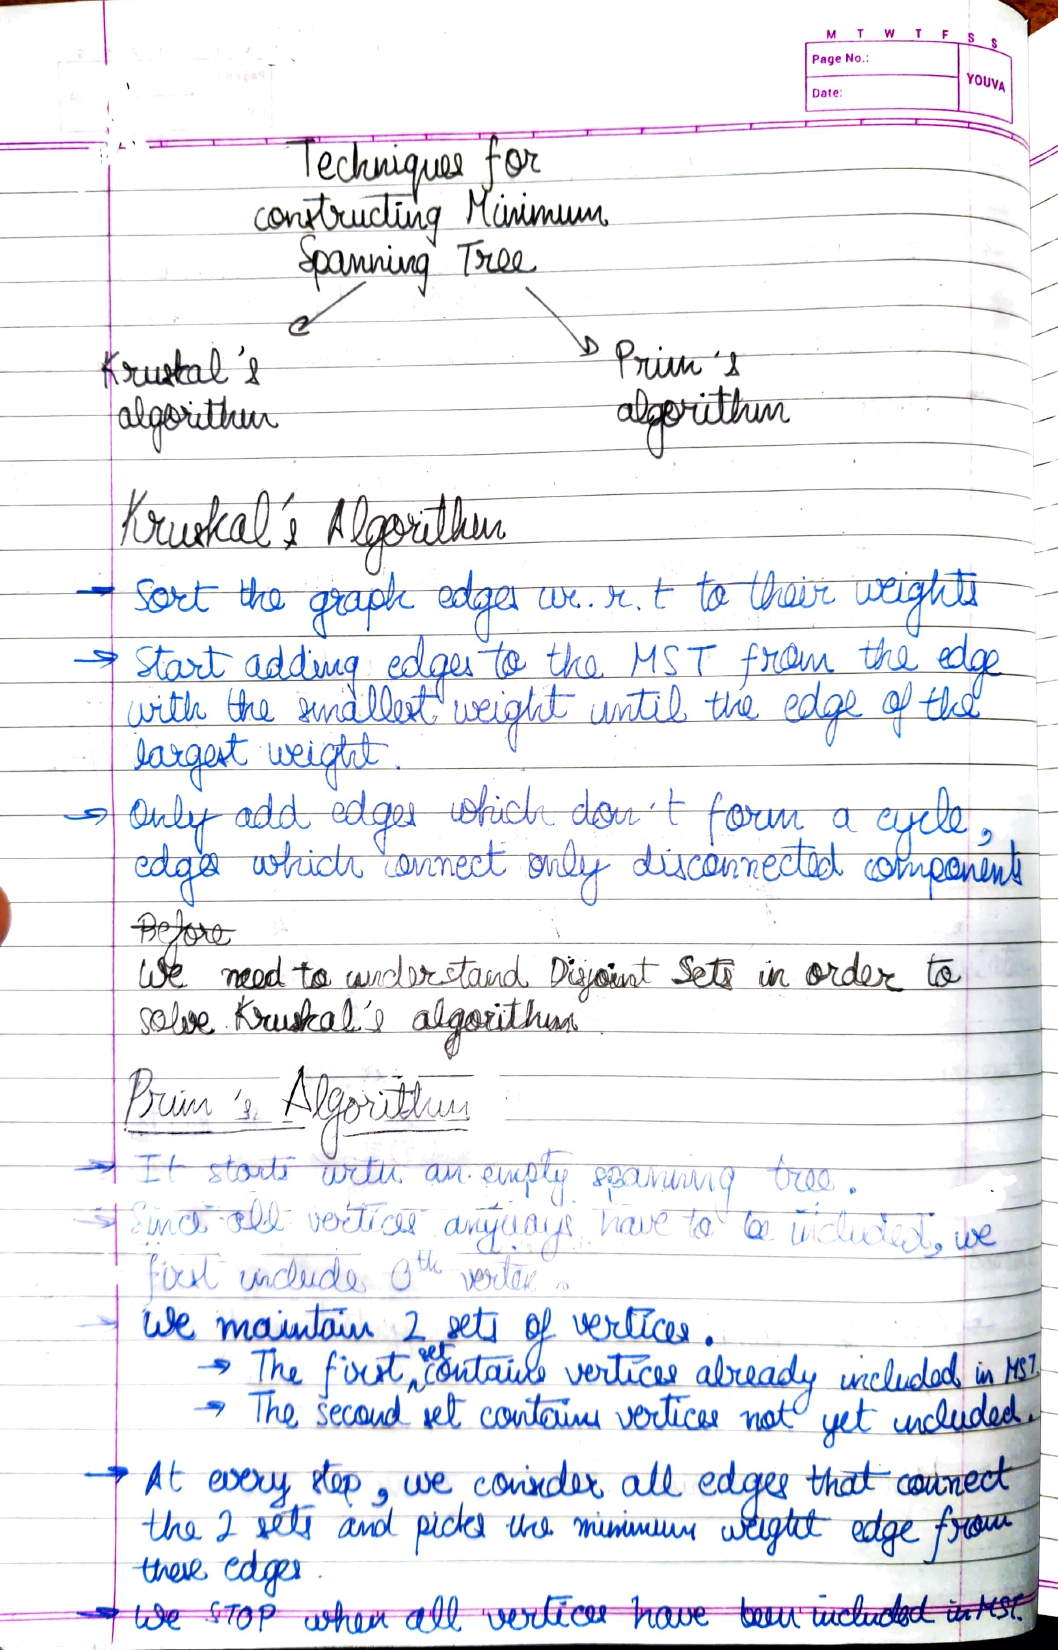 M T W T F S S
Page No.:
YOUVA
Date:
Techniques for
constructing Minimum
Spanning Tree
Kruskal's
algorithm
Prim's
algorithm
Kruskal's Algorithm
Sort the graph edges w.r.t to their weights
→ Start adding edges to the MST from the edge
with the smallest weight until the edge of the
largest weight.
→ Only add edges which don't form a cycle,
edges which connect only disconnected components
Before
We need to understand Disjoint Sets in order to
solve Kruskal's algorithm
Prim's Algorithm
→ It starts with an empty spanning tree.
→ Since all vertices anyways have to be included, we
first include 0th vertex.
→ We maintain 2 sets of vertices.
→ The first set contains vertices already included in MST.
→ The second set contains vertices not yet included.
→ At every step, we consider all edges that connect
the 2 sets and picks the minimum weight edge from
these edges.
→ We STOP when all vertices have been included in MST.